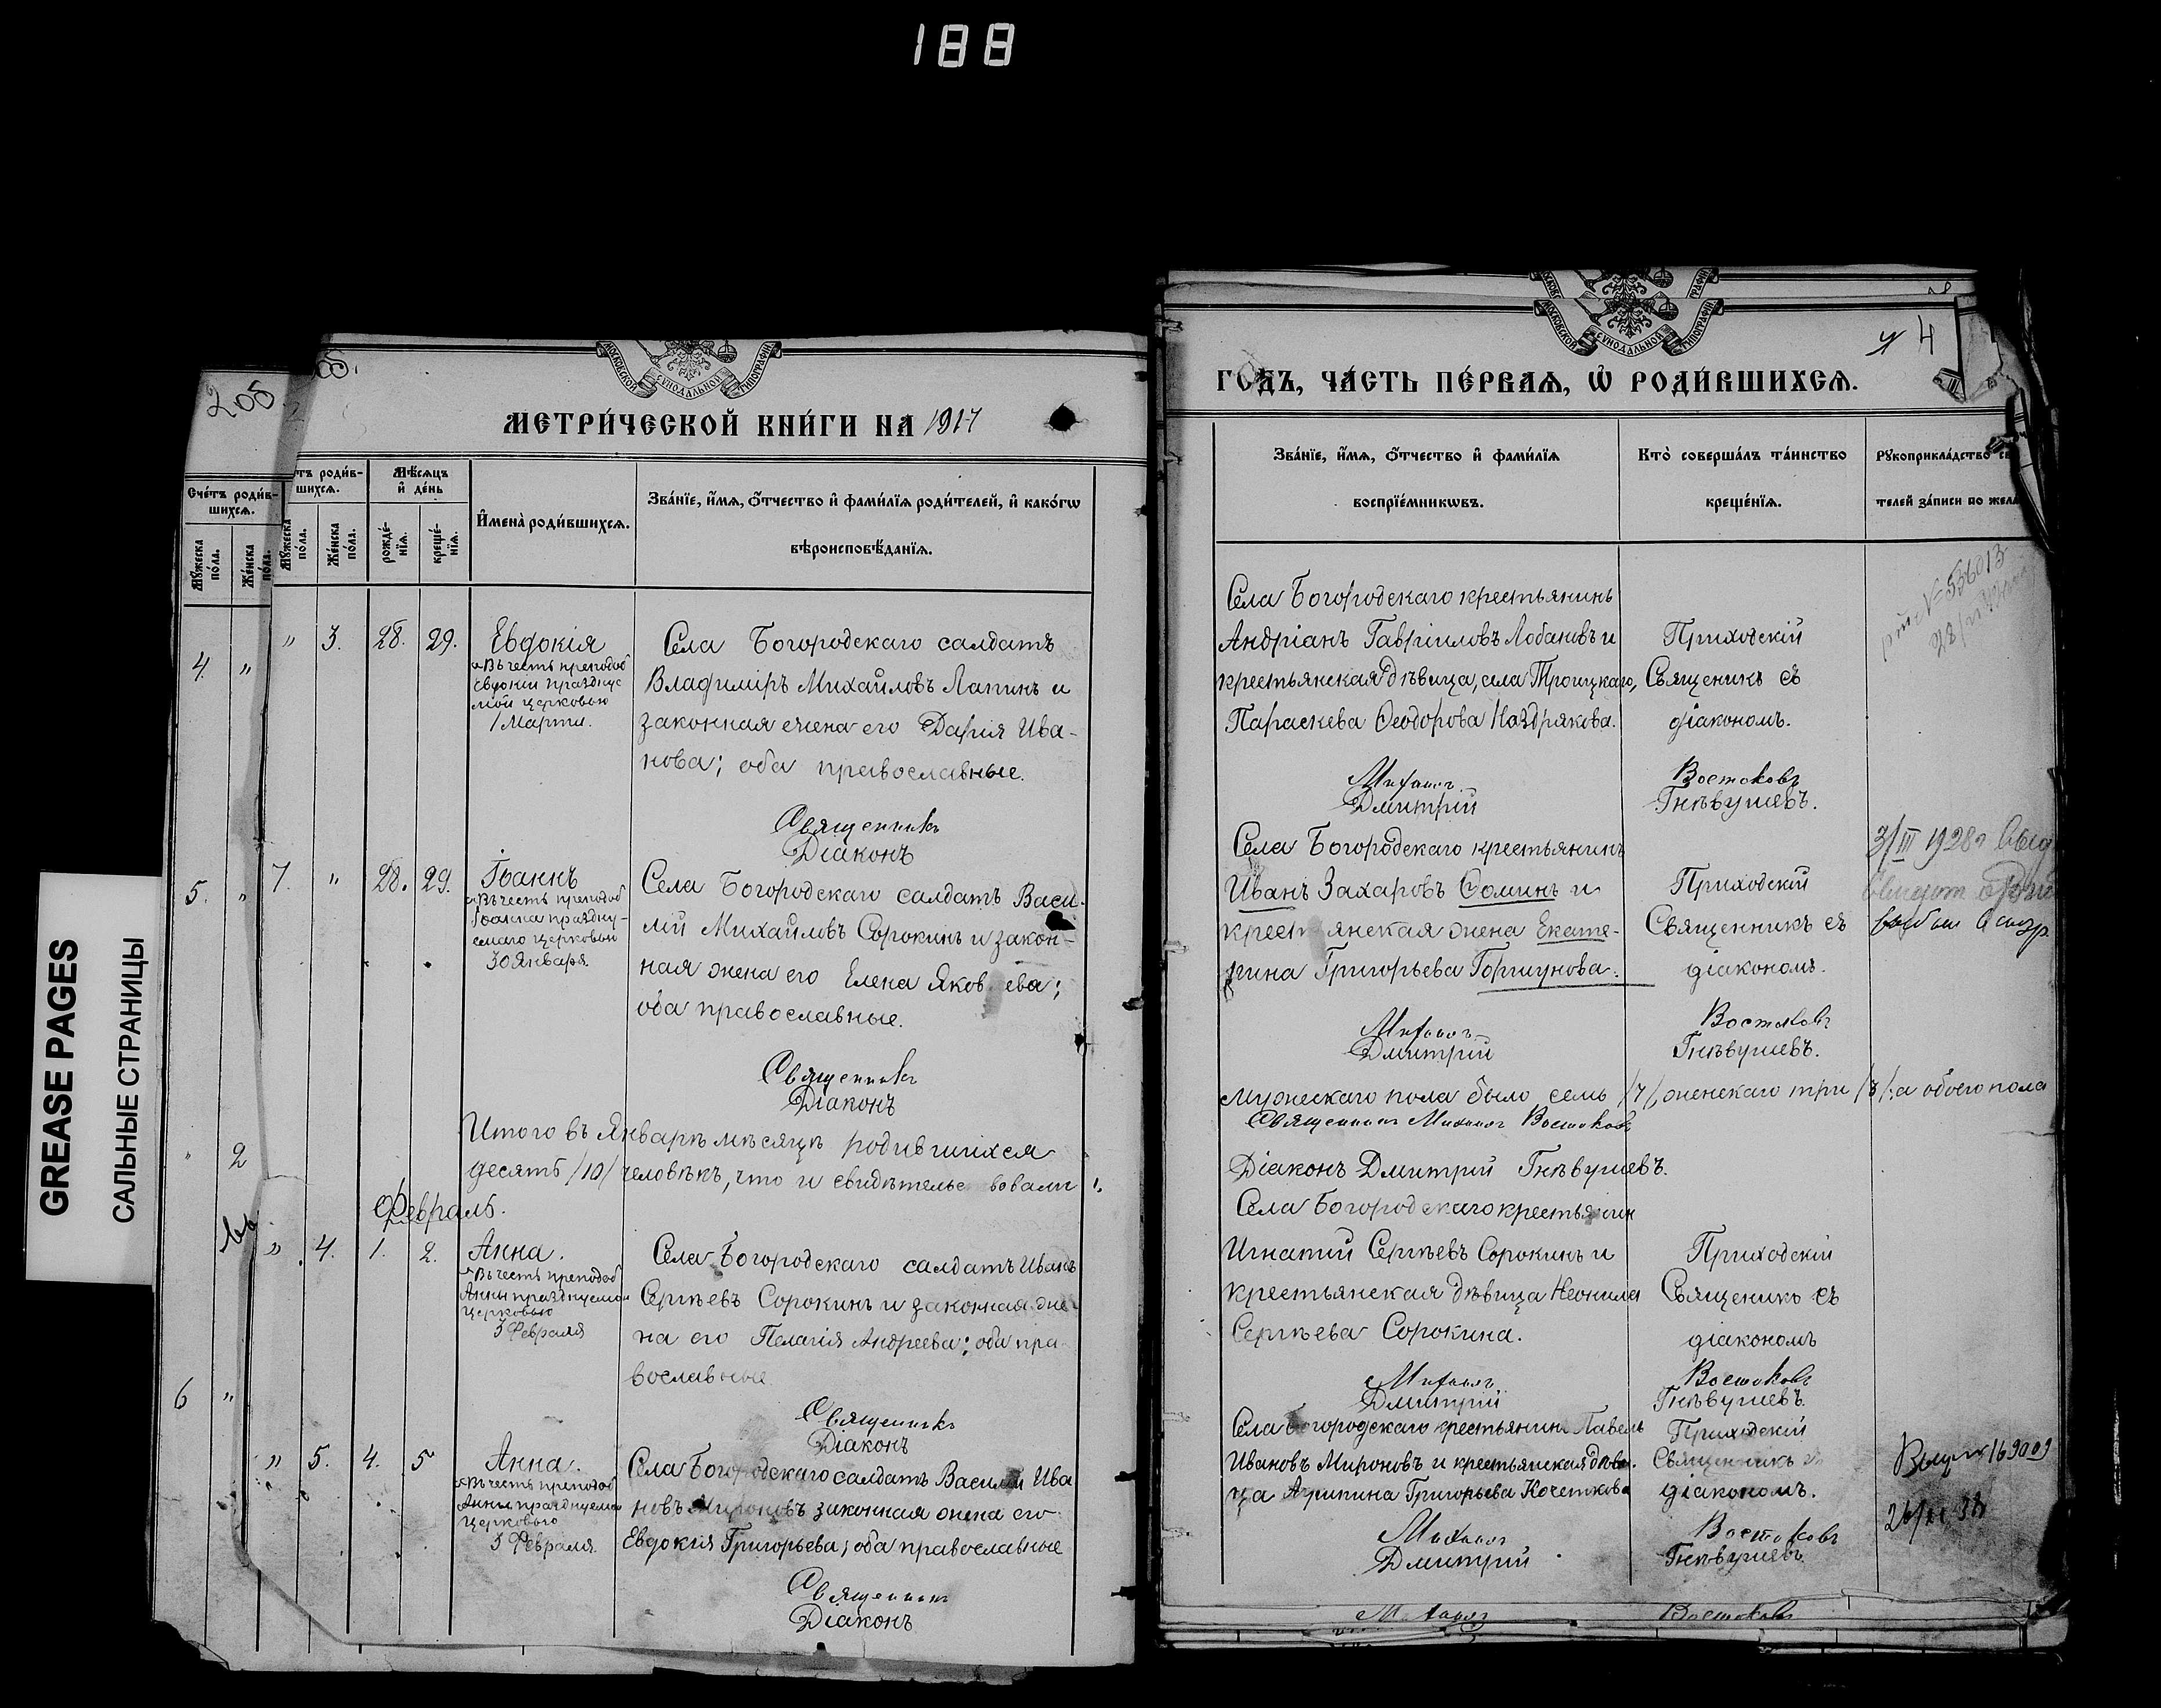 188
GREASE PAGES
САЛЬНЫЕ СТРАНИЦЫ
205
МОСКОВСКОЙ СУНОДАЛЬНОЙ ТИПОГРАФИИ
МЕТРИ́ЧЕСКОЙ КНИ́ГИ НА 1917
Сче́тъ роди́в-
шихсѧ.
Мꙋ́жеска по́ла.
Же́нска по́ла.
тъ роди́в-
шихсѧ.
Мꙋ́жеска по́ла.
Же́нска по́ла.
Мѣ́сѧцъ
и҆ де́нь
рожде́-
нїѧ.
креще́-
нїѧ.
И҆мена̀ роди́вшихсѧ.
Зва́нїе, и҆́мѧ, ѻ҆́тчество и҆ фами́лїѧ роди́телей, и҆ како́гѡ
вѣроисповѣ́данїѧ.
4. "
" 3. 28. 29. Евдокія
въ честь преподоб
Евдокіи празднуе
мой церковью
1 Марта.
Села Богородскаго салдатъ
Владиміръ Михайловъ Лапинъ и
законная жена его Дарія Ива-
нова; оба православные.
Священникъ
Діаконъ
5. "
7. " 28. 29. Іоаннъ
въ честь преподоб
Іоанна праздну-
емаго церковью
30 Января.
Села Богородскаго салдатъ Васи-
лій Михайловъ Сорокинъ и закон-
ная жена его Елена Яковлева;
оба православные.
Священникъ
Діаконъ
" 2
Итого въ Январѣ мѣсяцѣ родившихся
десять /10/ человѣкъ, что и свидѣтельствовали
Февраль.
" 4. 1. 2. Анна.
въ честь преподоб
Анны празднуемой
церковью
3 Февраля
Села Богородскаго салдатъ Иванъ
Сергѣевъ Сорокинъ и законная же-
на его Пелагія Андреева; оба пра-
вославные
Священникъ
Діаконъ
6 "
" 5. 4. 5 Анна.
въ честь преподоб
Анны празднуемой
церковью
3 Февраля.
Села Богородскаго салдатъ Василій Ива
новъ Мироновъ законная жена его
Евдокія Григорьева; оба православные
Священникъ
Діаконъ
МОСКОВСКОЙ СУНОДАЛЬНОЙ ТИПОГРАФИИ
4
ГО́ДЪ, ЧА́СТЬ ПЕ́РВАѦ, Ѡ҆ РОДИ́ВШИХСѦ.
Зва́нїе, и҆́мѧ, ѻ҆́тчество и҆ фами́лїѧ
воспрїе́мникѡвъ.
Кто̀ соверша́лъ та́инство
креще́нїѧ.
Рꙋкоприкла́дство св
телей за́писи по жела
Села Богородскаго крестьянинъ
Андріанъ Гавріиловъ Лобановъ и
крестьянская дѣвица, села Троицкаго,
Параскева Ѳеодорова Наздрякова.
Приходскій
Священикъ съ
діакономъ.
№ 536013
Михаилъ Востоковъ
Дмитрій Гнѣвушевъ.
Села Богородскаго крестьянинъ
Иванъ Захаровъ Соминъ и
крестьянская жена Екате-
рина Григорьева Горшунова.
Приходскій
Священникъ съ
діакономъ.
3/III 1928г
Михаилъ Востоковъ
Дмитрій Гнѣвушевъ.
мужескаго пола было семь /7/, женскаго три /3/; а обоего пола
Священникъ Михаилъ Востоковъ
Діаконъ Дмитрій Гнѣвушевъ.
Села Богородскаго крестьянин
Игнатій Сергѣевъ Сорокинъ и
крестьянская дѣвица Неонила
Сергѣева Сорокина.
Приходскій
Священикъ съ
діакономъ
Михаилъ Востоковъ
Дмитрій Гнѣвушевъ.
Села Богородскаго крестьянинъ Павелъ
Ивановъ Мироновъ и крестьянская дѣви-
ца Агрипина Григорьева Кочеткова
Приходскій
Священникъ
діакономъ.
Михаилъ Востоковъ
Дмитрій Гнѣвушевъ.
Михаилъ Востоковъ